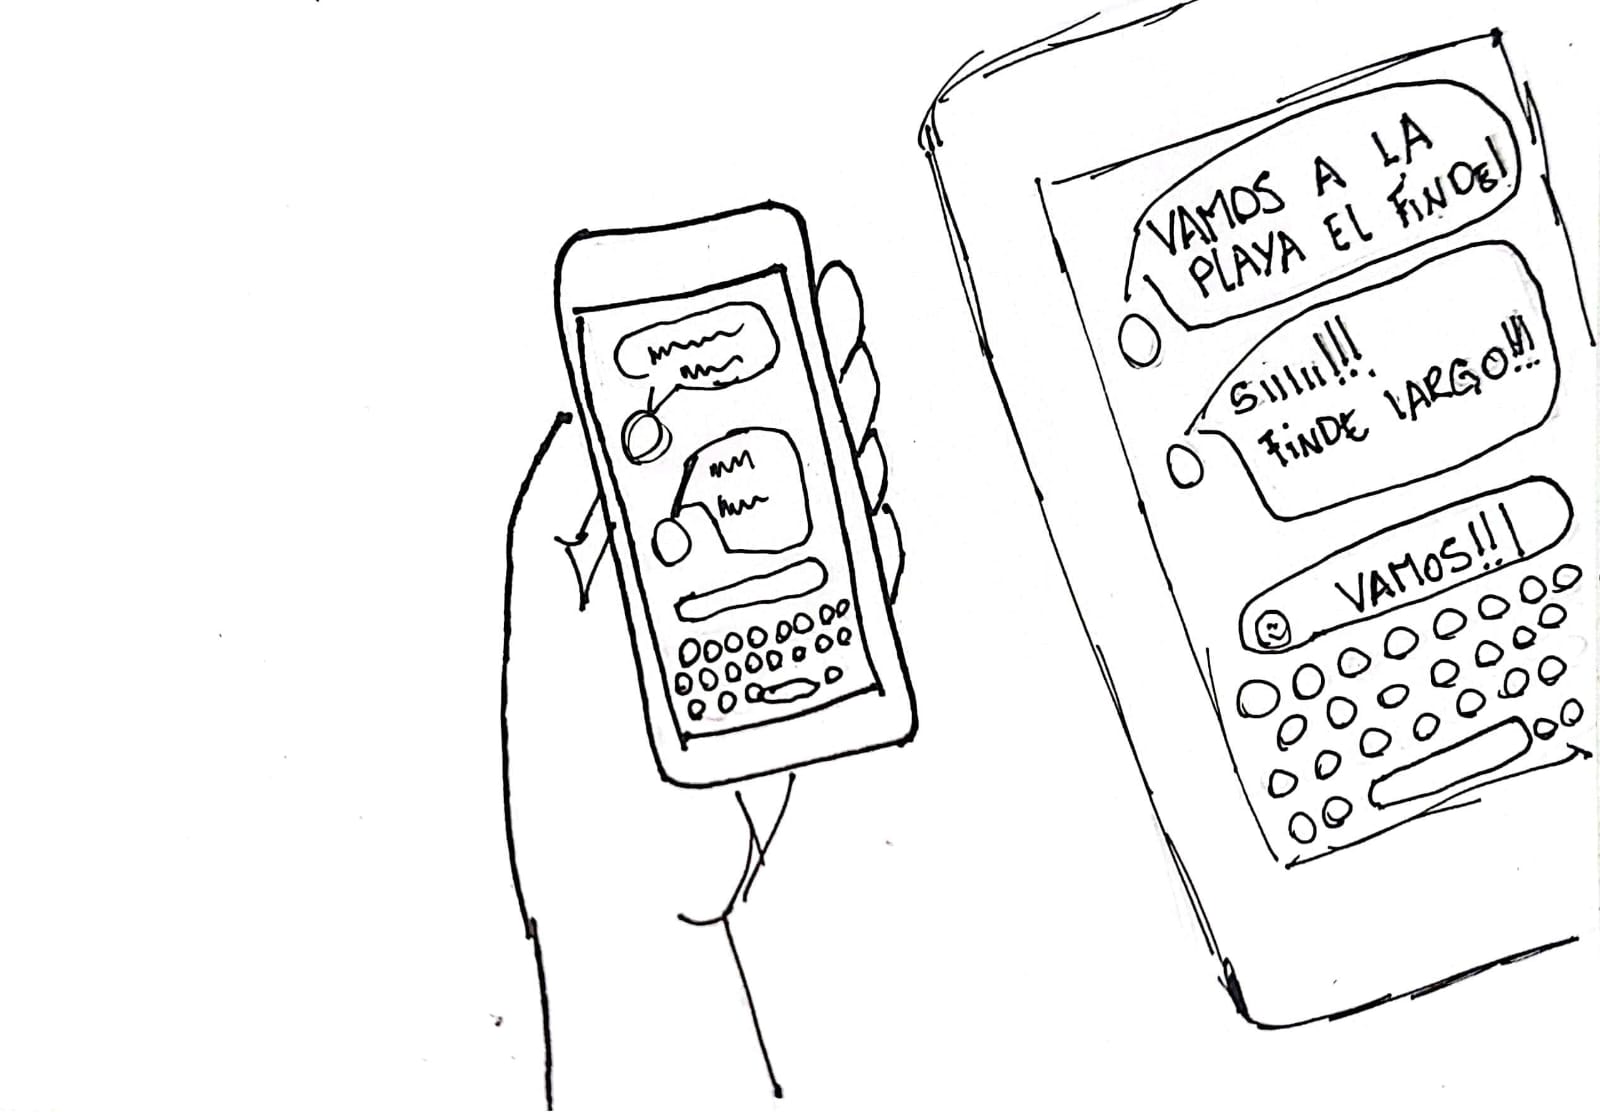 VAMOS A LA
PLAYA EL FINDE!
SIIIII!!!
FINDE LARGO!!!
VAMOS!!|